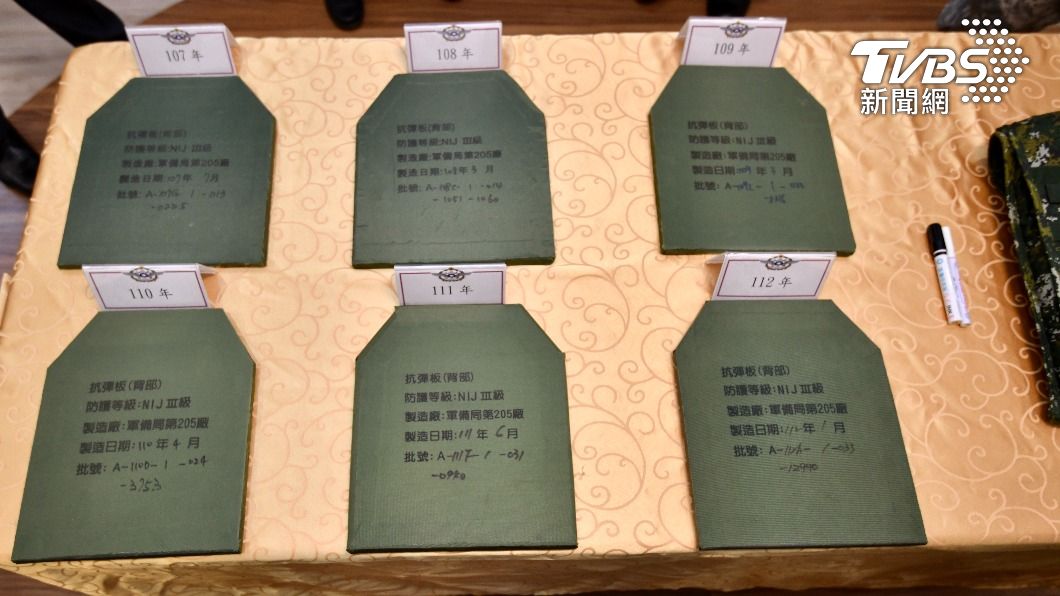 107 年
108 年
109 年
TVBS
新聞網
抗彈板(背部)
防護等級:NIJ III級
製造廠:軍備局第205廠
製造日期:107年 7月
批號: A-
抗彈板(背部)
防護等級:NIJ III級
製造廠:軍備局第205廠
製造日期:108年 3月
批號: A-
-1051-1060
抗彈板(背部)
防護等級:NIJ III級
製造廠:軍備局第205廠
製造日期:109 年 月
批號: A-
110 年
111 年
112 年
抗彈板(背部)
防護等級:NIJ III級
製造廠:軍備局第205廠
製造日期:110年 4 月
批號: A-1100-1 -024
-3753
抗彈板(背部)
防護等級:NIJ III級
製造廠:軍備局第205廠
製造日期:111年 6月
批號: A-1117-1 -031
抗彈板(背部)
防護等級:NIJ III級
製造廠:軍備局第205廠
製造日期:112年 1月
批號: A- 1 -033
-12990